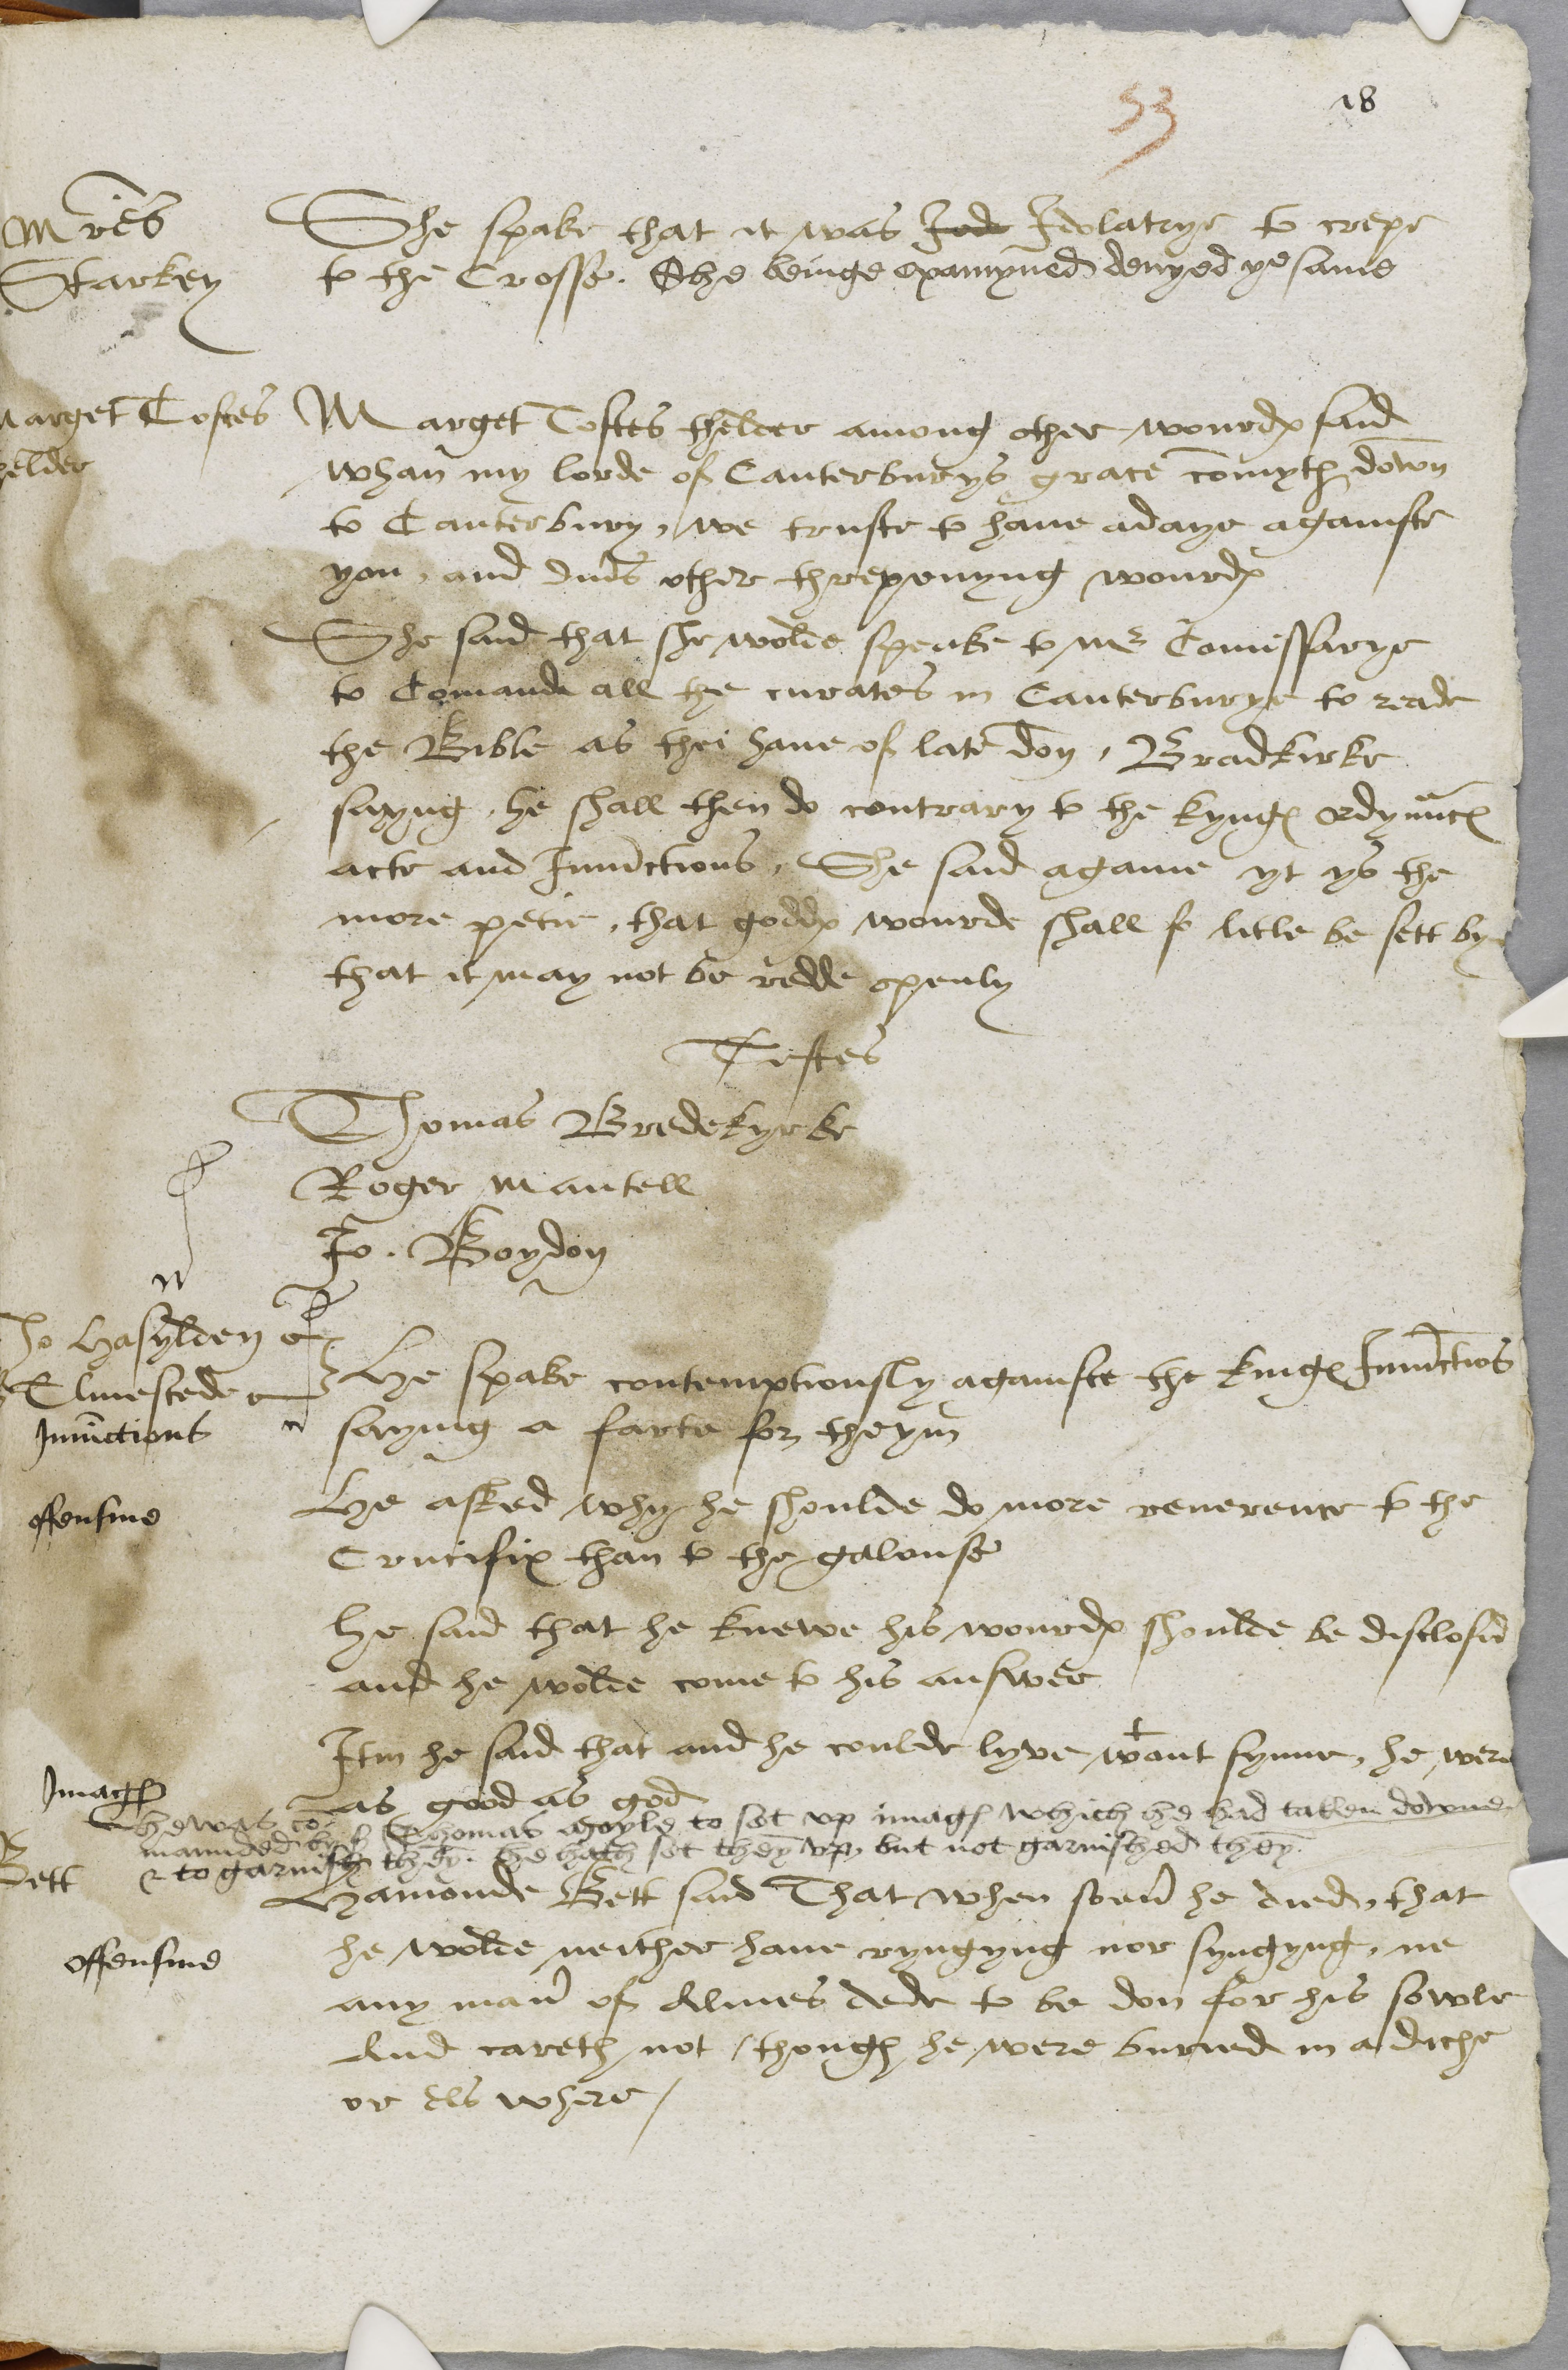 53
18
Mres
Starkey
She spake that it was Jode Idolatrye to crepe
to the Crosse. She beinge examyned denyed ye same
Marget Tostes
thelder
Marget Tostes thelder among other wourdes said
whan my lorde of Canterburys grace comyth down
to Canterbury, we truste to haue adaye againste
you, and diuers other threpenyng wourdes
She said that she wolde speake to Mr Comissarye
to Comande all the curates in Canterburye to reade
the Bible as thei haue of late don, Bradkirke
sayng, he shall then do contrary to the kynges ordynances
acte and Iniunctions, She said againe yt ys the
more petie, that goddes wourde shall so litle be sett by
that it may not be redde openly
Testes
Thomas Bredekyrke
Roger Mantell
Jo. Boydon
Jo Hasylden
Elmestede
Iniunctions
He spake contemptiously againste the kinges Iniunctios
saying a farte for theym
offensiue
He asked why he shoulde do more reuerence to the
Crucifix than to the galouse
He said that he knewe his wourdes shoulde be disclosed
and he wolde come to his answer
Itm he said that and he coulde lyve wtout synne, he were
as good as god
Images
he was co-
maunded by Sr Thomas Moyle to set vp images which he had taken downe
& to garnish them. he hath set them vp, but not garnished them.
Bett
Hamonde Bett said That when soeuer he died, that
offensiue
he wolde neither haue ryngyng nor syngyng, ne
any maner of Almes dede to be don for his sowle
And careth not / though he were buried in a diche
or els where /